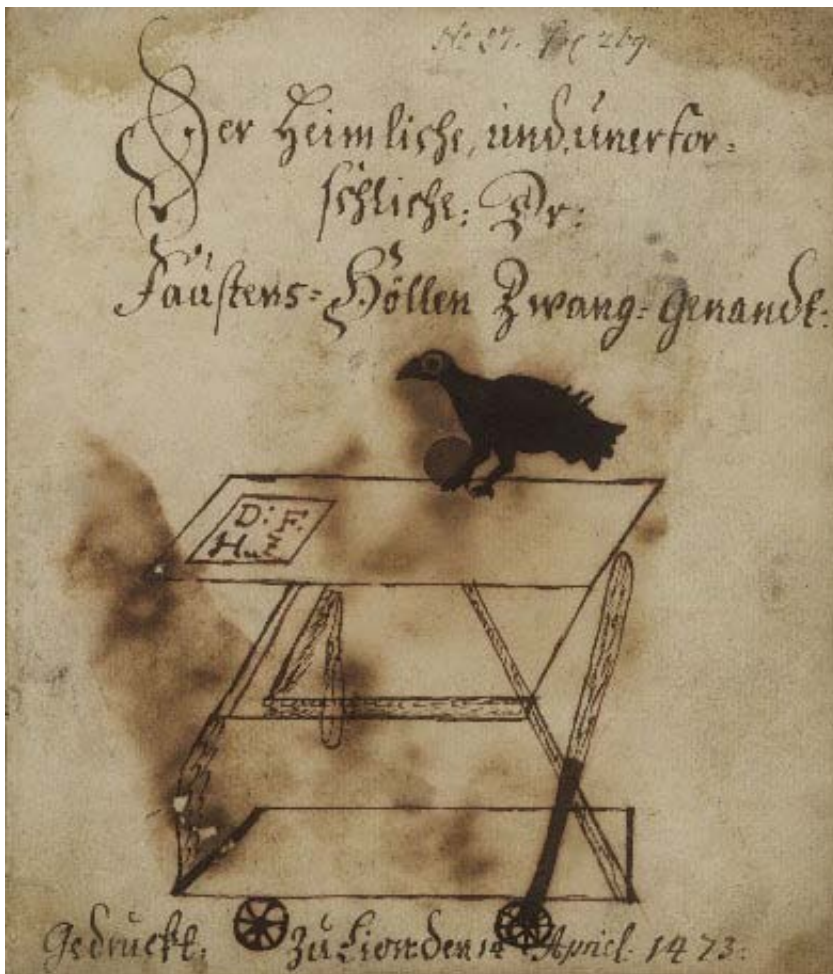 Der Heimliche, und, unerfor=
schliche: Dr:
Faustens= Höllen Zwang= genandt:
D: F:
HuZ
Gedruckt: Zu Lion den 14 Apriel 1473: